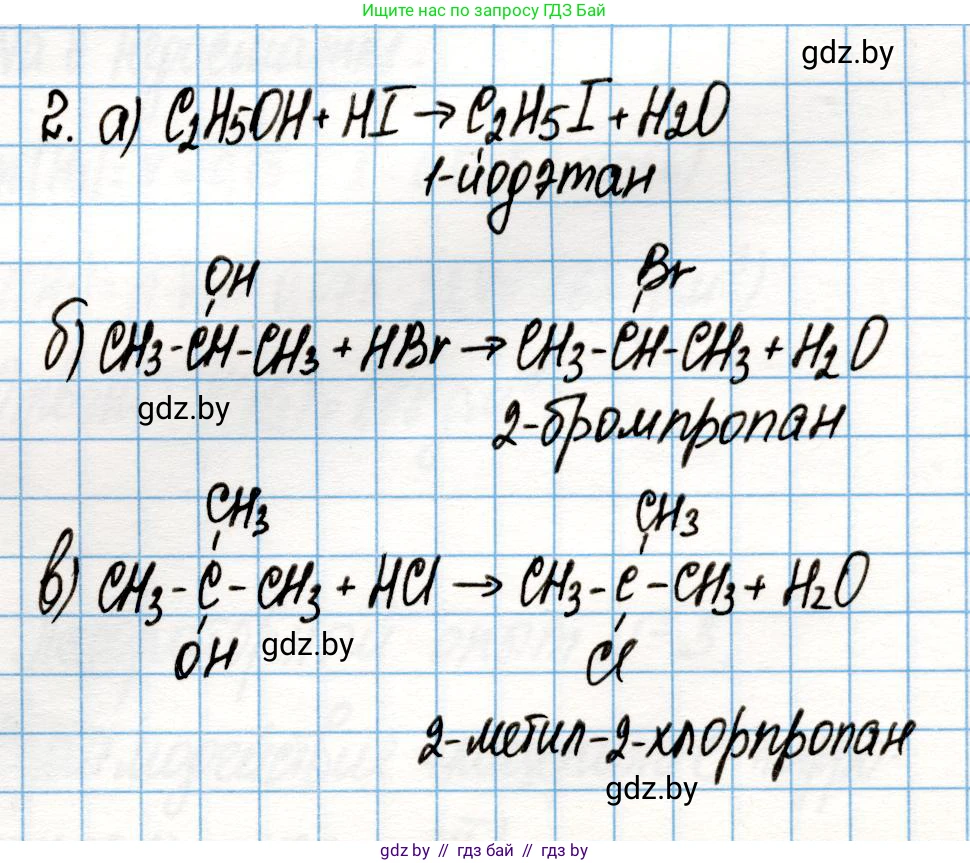 Ищите нас по запросу ГДЗ Бай
gdz.by
2. а) C2H5OH + HI → C2H5I + H2O
1-йодэтан
OH Br
б) CH3-CH-CH3 + HBr → CH3-CH-CH3 + H2O
gdz.by
2-бромпропан
CH3 CH3
в) CH3-C-CH3 + HCl → CH3-C-CH3 + H2O
OH gdz.by Cl
2-метил-2-хлорпропан
gdz.by
gdz.by // гдз бай // гдз by